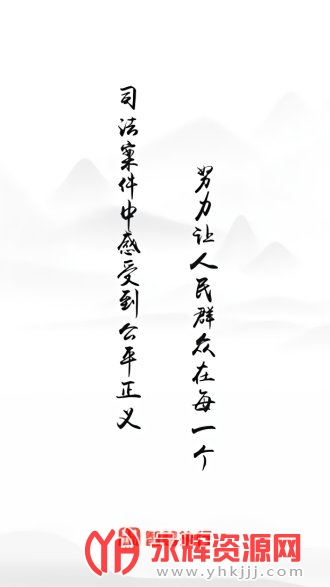 努力让人民群众在每一个
司法案件中感受到公平正义
永辉资源网
www.yhkjjj.com